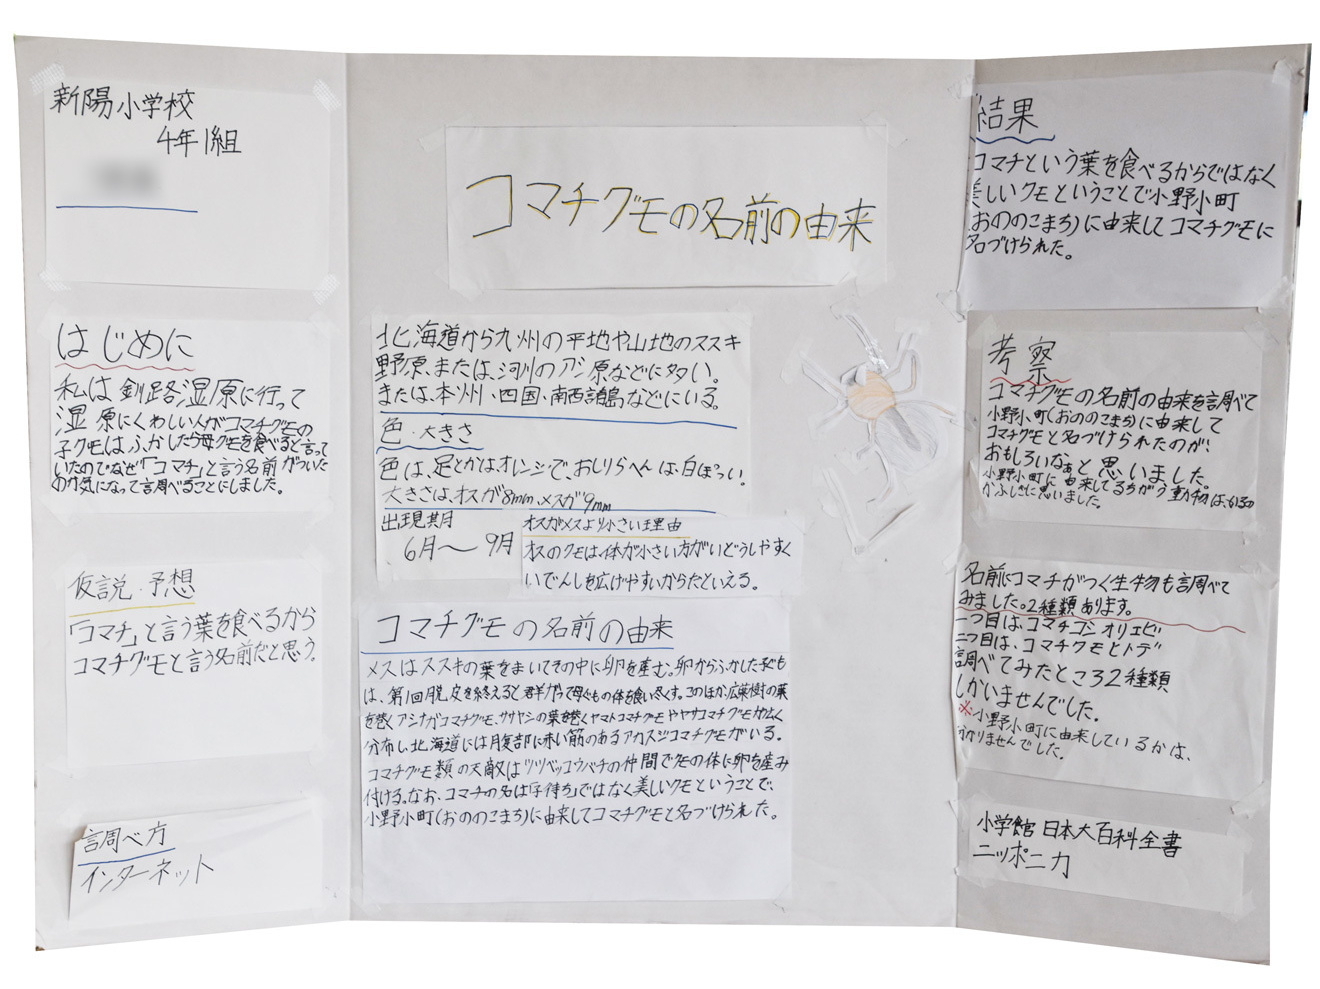 新陽小学校
4年1組
はじめに
私は釧路湿原に行って
湿原にくわしい人がコマチグモの
子グモはふかしたら母グモを食べると言って
いたのでなぜ「コマチ」と言う名前がついた
のか気になって調べることにしました。
仮説・予想
「コマチ」と言う葉を食べるから
コマチグモと言う名前だと思う。
調べ方
インターネット
コマチグモの名前の由来
北海道から九州の平地や山地のススキ
野原、または、河川のアシ原などに多い。
または、本州・四国・南西諸島などにいる。
色・大きさ
色は、足とかはオレンジで、おしりらへんは、白ぽっい。
大きさは、オスが8mm、メスが9mm
出現期月
6月〜9月
オスがメスより小さい理由
オスのクモは体が小さい方がいどうしやすく
いでんしを広げやすいからだといえる。
コマチグモの名前の由来
メスはススキの葉をまいてその中に卵を産む。卵からふかした子ども
は、第1回脱皮を終えると群がって母ぐもの体を食い尽くす。このほか、広葉樹の葉
を巻くアシナガコマチグモ、ササヤシの葉を巻くヤマトコマチグモやヤサコマチグモが広く
分布し、北海道には腹部に赤い筋のあるアカスジコマチグモがいる。
コマチグモ類の天敵はツツベッコウバチの仲間でクモの体に卵を産み
付ける。なお、コマチの名は「子待ち」ではなく美しいクモということで、
小野小町(おののこまち)に由来してコマチグモと名づけられた。
結果
コマチという葉を食べるからではなく
美しいクモということで小野小町
(おののこまち)に由来してコマチグモに
名づけられた。
考察
コマチグモの名前の由来を調べて
小野小町(おののこまち)に由来して
コマチグモと名づけられたのが、
おもしろいなぁと思いました。
小野小町に由来してるちがう動物は、いるの
かふしぎに思いました。
名前にコマチがつく生物も調べて
みました。2種類あります。
一つ目は、コマチコシオリエビ
二つ目は、コマチクモヒトデ
調べてみたところ2種類
しかいませんでした。
※小野小町に由来しているかは、
分かりませんでした。
小学館 日本大百科全書
ニッポニカ